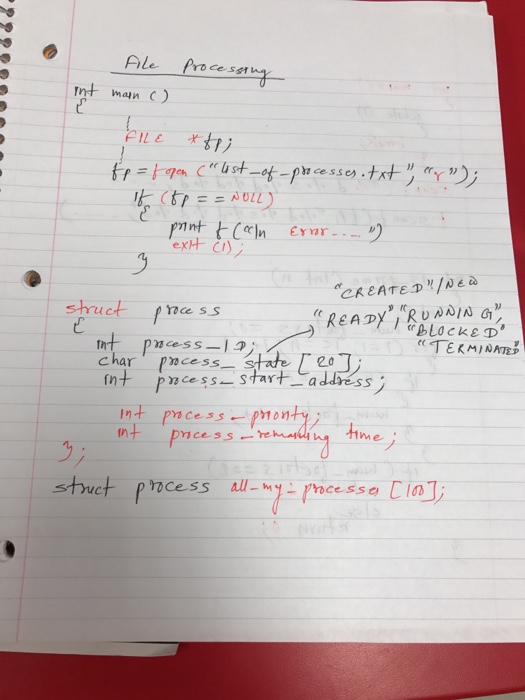 File Processing
int main ()
{
FILE *fp;
fp = fopen ("list_of_processes.txt", "r");
if (fp == NULL)
{
printf ("\n Error....")
exit (1);
}
"CREATED"/NEW
struct process
"READY", "RUNNING",
{
"BLOCKED"
int process_ID;
"TERMINATED
char process_state [20];
int process_start_address;
int process_priority;
int process_remaining time;
};
struct process all_my_processes [100];